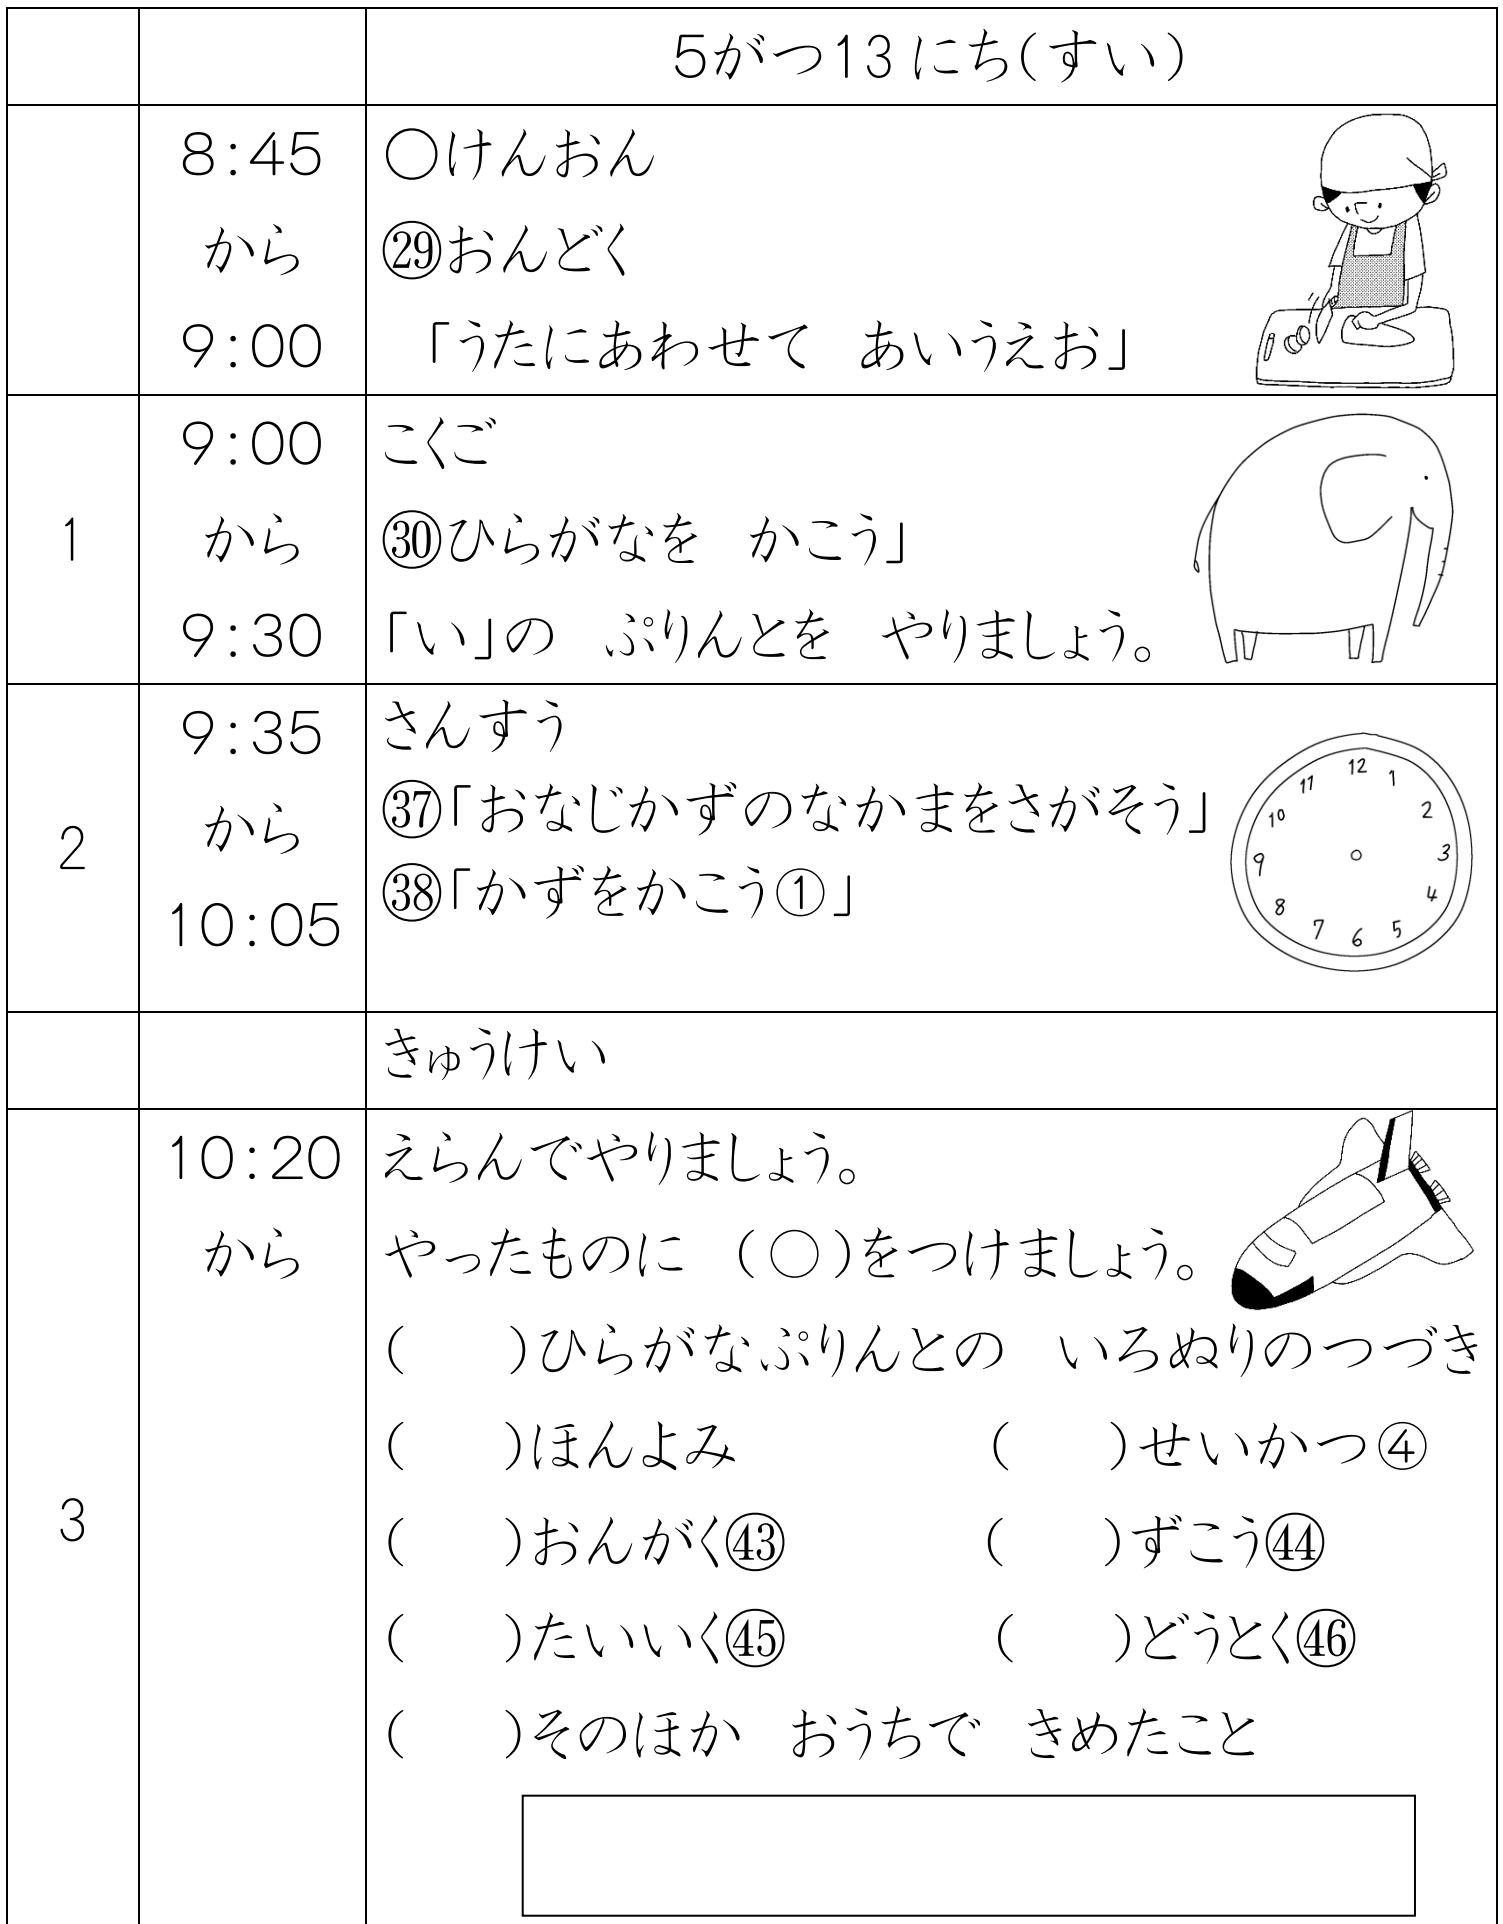 5がつ13にち(すい)
8:45
から
9:00
○けんおん
㉙おんどく
「うたにあわせて　あいうえお」
1
9:00
から
9:30
こくご
㉚ひらがなを　かこう」
「い」の　ぷりんとを　やりましょう。
2
9:35
から
10:05
さんすう
㊲「おなじかずのなかまをさがそう」
㊳「かずをかこう①」
12
1
2
3
4
5
6
7
8
9
10
11
きゅうけい
3
10:20
から
えらんでやりましょう。
やったものに　(○)をつけましょう。
(　　)ひらがなぷりんとの　いろぬりのつづき
(　　)ほんよみ　　　　　(　　)せいかつ④
(　　)おんがく㊸　　　　(　　)ずこう㊹
(　　)たいいく㊺　　　　(　　)どうとく㊻
(　　)そのほか　おうちで　きめたこと